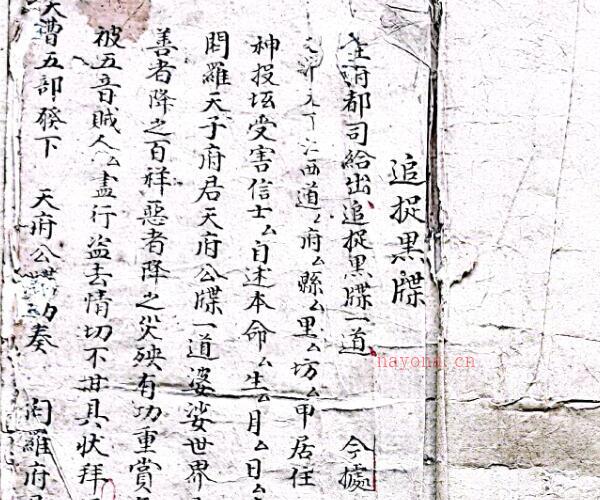 追捉黑牒
府都司給出追捉黑牒一道 今據
江西道厶府厶縣厶里厶坊厶甲居住
神投坛受害信士厶自述本命厶生厶月厶日厶
閻羅天子府君天府公牒一道婆娑世界
善者降之百祥惡者降之災殃有功重賞
被五音賊人厶盡行盗去情切不甘具狀拜
曹五部 下 天府公牒 奏 閻羅府
nayona.cn